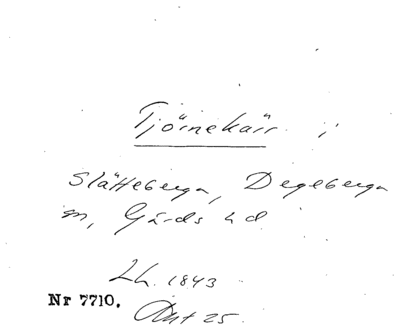 Tjörnekärr i
Slätteberga, Degeberga
sn, Gärds hd.
Lh. 1843
Nr 7710. Akt 25.